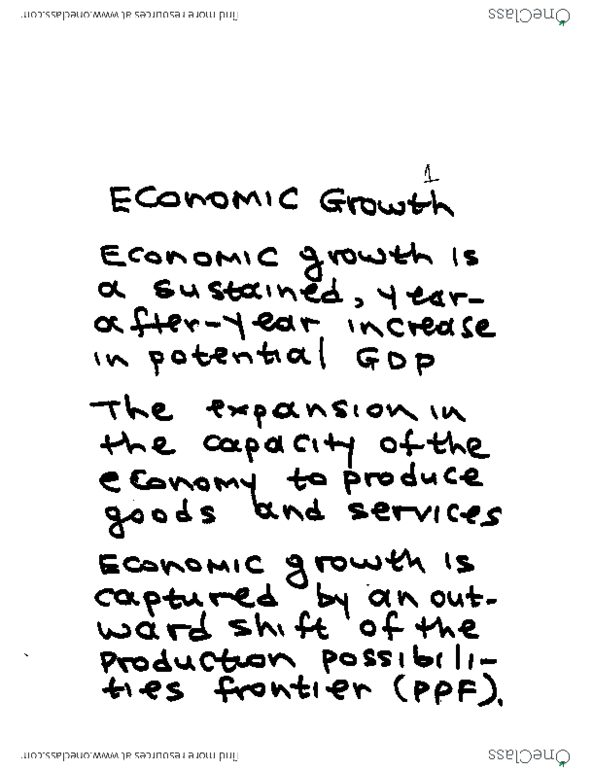 find more resources at www.oneclass.com
OneClass
1
Economic Growth
Economic growth is
a sustained, year-
after-year increase
in potential GDP
The expansion in
the capacity of the
economy to produce
goods and services
Economic growth is
captured by an out-
ward shift of the
production possibili-
ties frontier (PPF).
find more resources at www.oneclass.com
OneClass